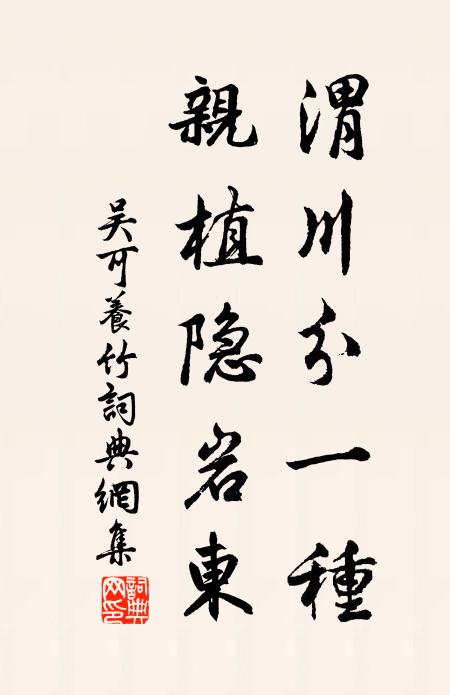 渭川分一種
親植隐岩東
吴可養竹詞典網集
詞典网印